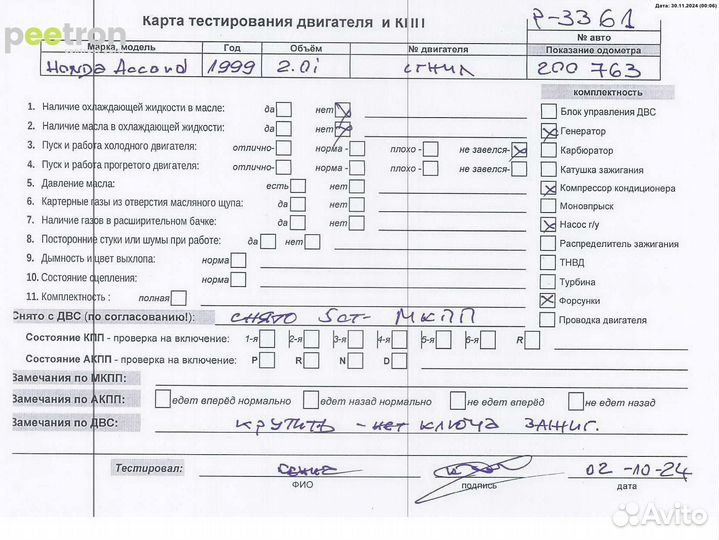 Дата: 30.11.2024 (00:06)
peetron
Карта тестирования двигателя и КПП
P-3361
№ авто
Марка, модель Год Объём № двигателя Показание одометра
Honda Accord 1999 2.0i СГНИЛ 200 763
комплектность
1. Наличие охлаждающей жидкости в масле: да нет
2. Наличие масла в охлаждающей жидкости: да нет
3. Пуск и работа холодного двигателя: отлично- норма - плохо - не завелся-
4. Пуск и работа прогретого двигателя: отлично- норма - плохо -
5. Давление масла: есть нет
6. Картерные газы из отверстия масляного щупа: да нет
7. Наличие газов в расширительном бачке: да нет
8. Посторонние стуки или шумы при работе: да нет
9. Дымность и цвет выхлопа: норма
10. Состояние сцепления: норма
11. Комплектность : полная
Блок управления ДВС
Генератор
Карбюратор
Катушка зажигания
Компрессор кондиционера
Моновпрыск
Насос г/у
Распределитель зажигания
ТНВД
Турбина
Форсунки
Проводка двигателя
Снято с ДВС (по согласованию!): снято 5ст- МКПП
Состояние КПП - проверка на включение: 1-я 2-я 3-я 4-я 5-я 6-я R
Состояние АКПП - проверка на включение: P R N D
Замечания по МКПП:
Замечания по АКПП: едет вперёд нормально едет назад нормально не едет вперёд не едет назад
Замечания по ДВС: крутить - нет ключа зажиг.
Тестировал: 02-10-24
ФИО подпись дата
Avito